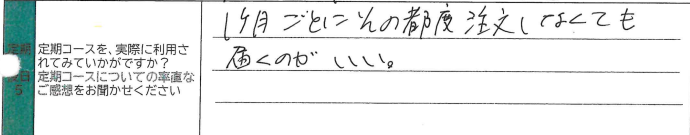 定期コースを、実際に利用さ
れてみていかがですか？
定期コースについての率直な
ご感想をお聞かせください
5
1ヶ月ごとにその都度注文しなくても
届くのがいいい。